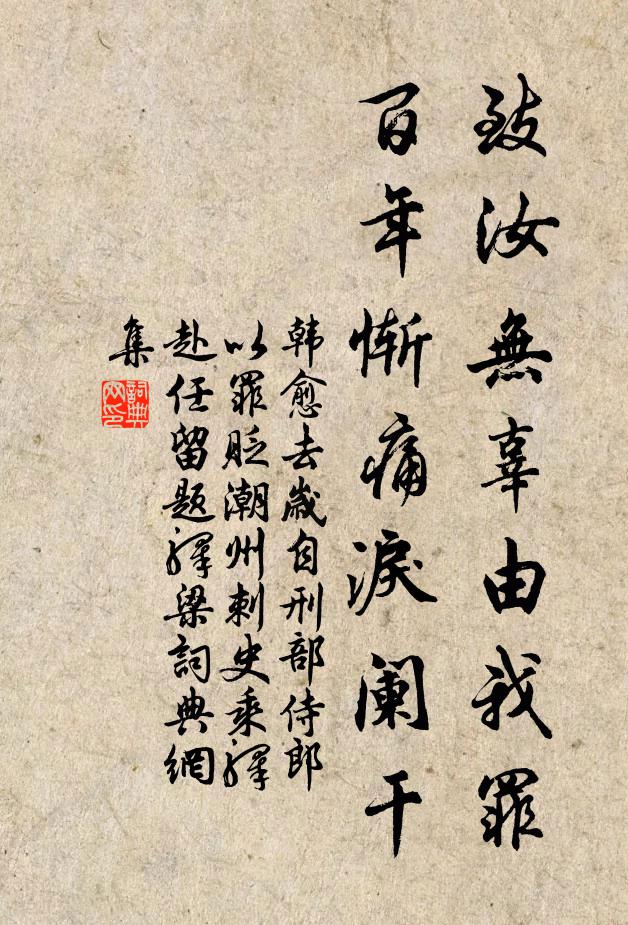 致汝無辜由我罪
百年慚痛淚阑干
韩愈去歲自刑部侍郎
以罪貶潮州刺史乘驛
赴任留题驛梁詞典網
集
詞典
网印